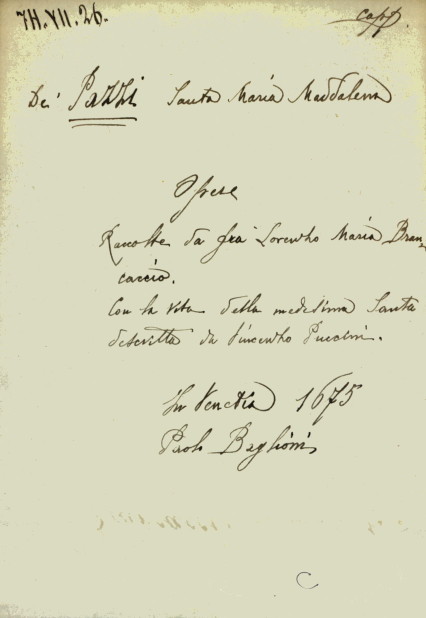 7H.VII.26.
capp.
De' PAZZI Santa Maria Maddalena
Opere
Raccolte da fra' Lorenzo Maria Bran-
caccio.
Con la Vita della medesima Santa
descritta da Vincenzo Puccini.
In Venetia 1675
Paolo Baglioni
C